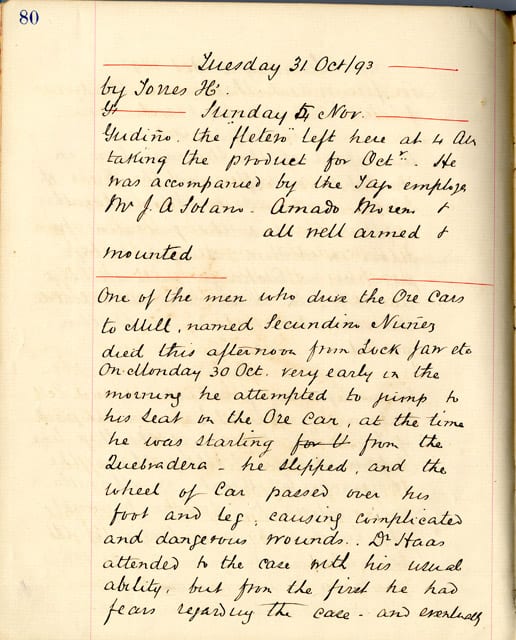 80
Tuesday 31 Oct/93
by Torres H°.
Sunday 5 Nov.
Gudiño. the "fletero" left here at 4 AM
taking the product for Octr. He
was accompanied by the Jago employe
Mr J. A Solano. Amado Moreno &
all well armed &
mounted
One of the men who drive the Ore Cars
to Mill, named Secundino Nuñez
died this afternoon from Lock Jaw etc
On Monday 30 Oct. very early in the
morning he attempted to jump to
his seat on the Ore Car, at the time
he was starting from the
Quebradera - he slipped, and the
wheel of Car passed over his
foot and leg, causing complicated
and dangerous wounds.. Dr Haas
attended to the case with his usual
ability, but from the first he had
fears regarding the case - and eventually